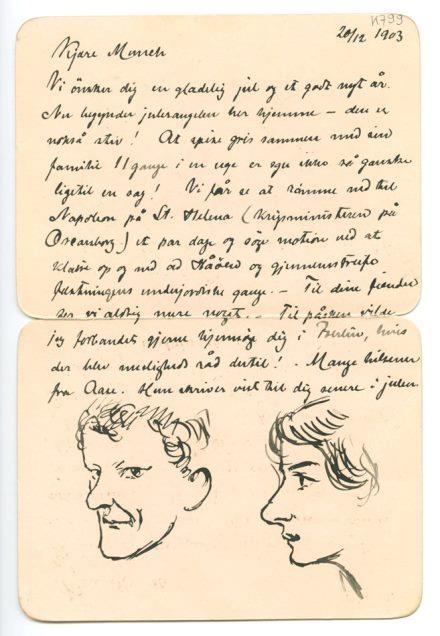 K 799
20/12 1903
Kjære Munch
Vi ønsker dig en gladelig jul og et godt nyt år.
Nu begynder julerangelen her hjemme – den er
nokså stiv! At spise gris sammen med sin
familie 11 gange i en uge er sgu ikke så ganske
ligetil en sag! Vi får se at rømme ned til
Napoleon på St. Helena (Krigsministeren på
Oscarborg) et par dage og søge motion ved at
klatre op og ned ad og gjennemstreife
fæstningens underjordiske gange. – Til dine fiender
ser vi aldrig mere noget. – Til påsken vilde
jeg forbandet gjerne hjemsøge dig i Berlin, hvis
der blev råd dertil! . Mange hilsener
fra Aase. Hun skriver vist til dig senere i julen.